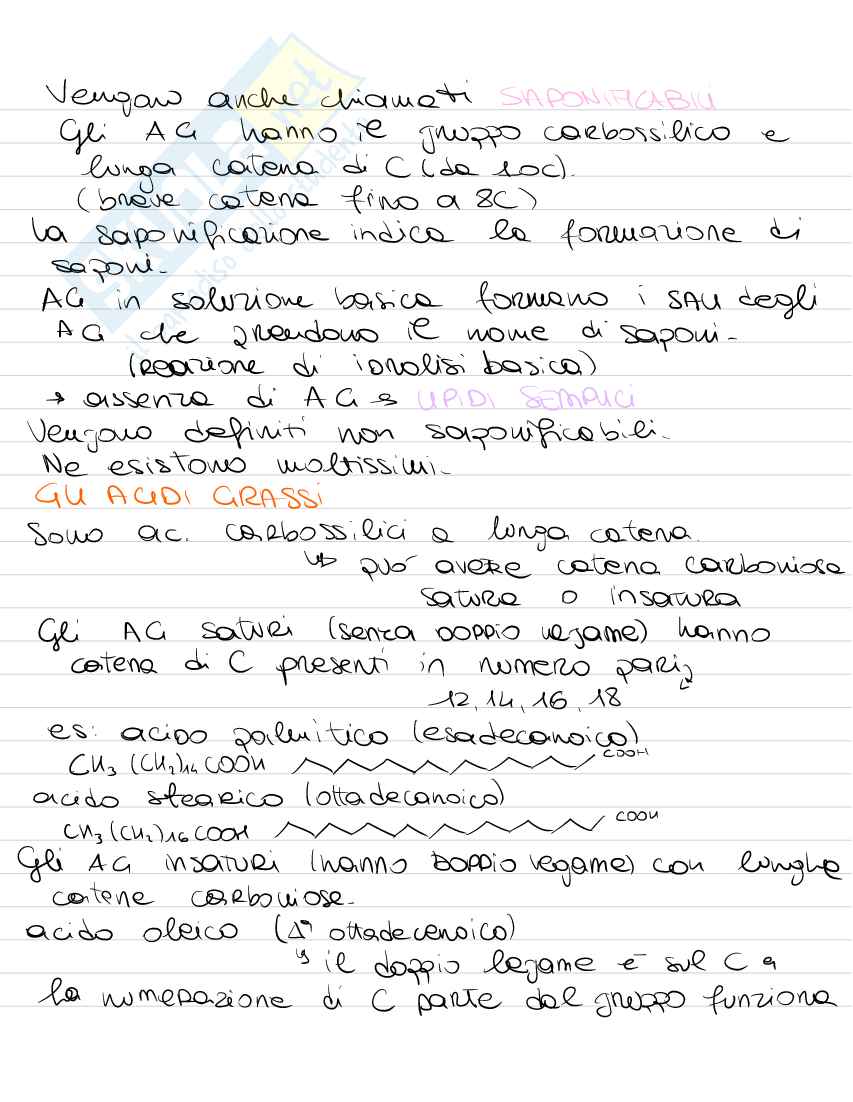 Vengono anche chiamati SAPONIFICABILI
Gli AG hanno il gruppo carbossilico e
lunga catena di C (da 10C).
(breve catena fino a 8C)
La saponificazione indica la formazione di
saponi.
AG in soluzione basica formano i SALI degli
AG che prendono il nome di saponi.
(reazione di idrolisi basica)
→ assenza di AG → LIPIDI SEMPLICI
Vengono definiti non saponificabili.
Ne esistono moltissimi.
GLI ACIDI GRASSI
Sono ac. carbossilici a lunga catena.
↳ può avere catena carboniosa
satura o insatura
Gli AG saturi (senza doppio legame) hanno
catena di C presenti in numero pari
12, 14, 16, 18
es: acido palmitico (esadecanoico)
CH₃ (CH₂)₁₄ COOH COOH
acido stearico (ottadecanoico)
CH₃ (CH₂)₁₆ COOH COOH
Gli AG insaturi (hanno doppio legame) con lunghe
catene carboniose.
acido oleico (Δ⁹ ottadecenoico)
↳ il doppio legame è sul C 9
la numerazione di C parte dal gruppo funziona
SKUOLA.net
il paradiso dello studente